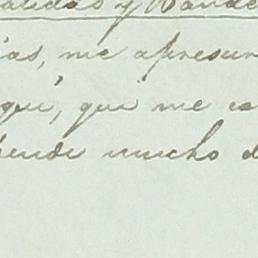 y Bande
ias, me apresur
qui, que me es
pende mucho d